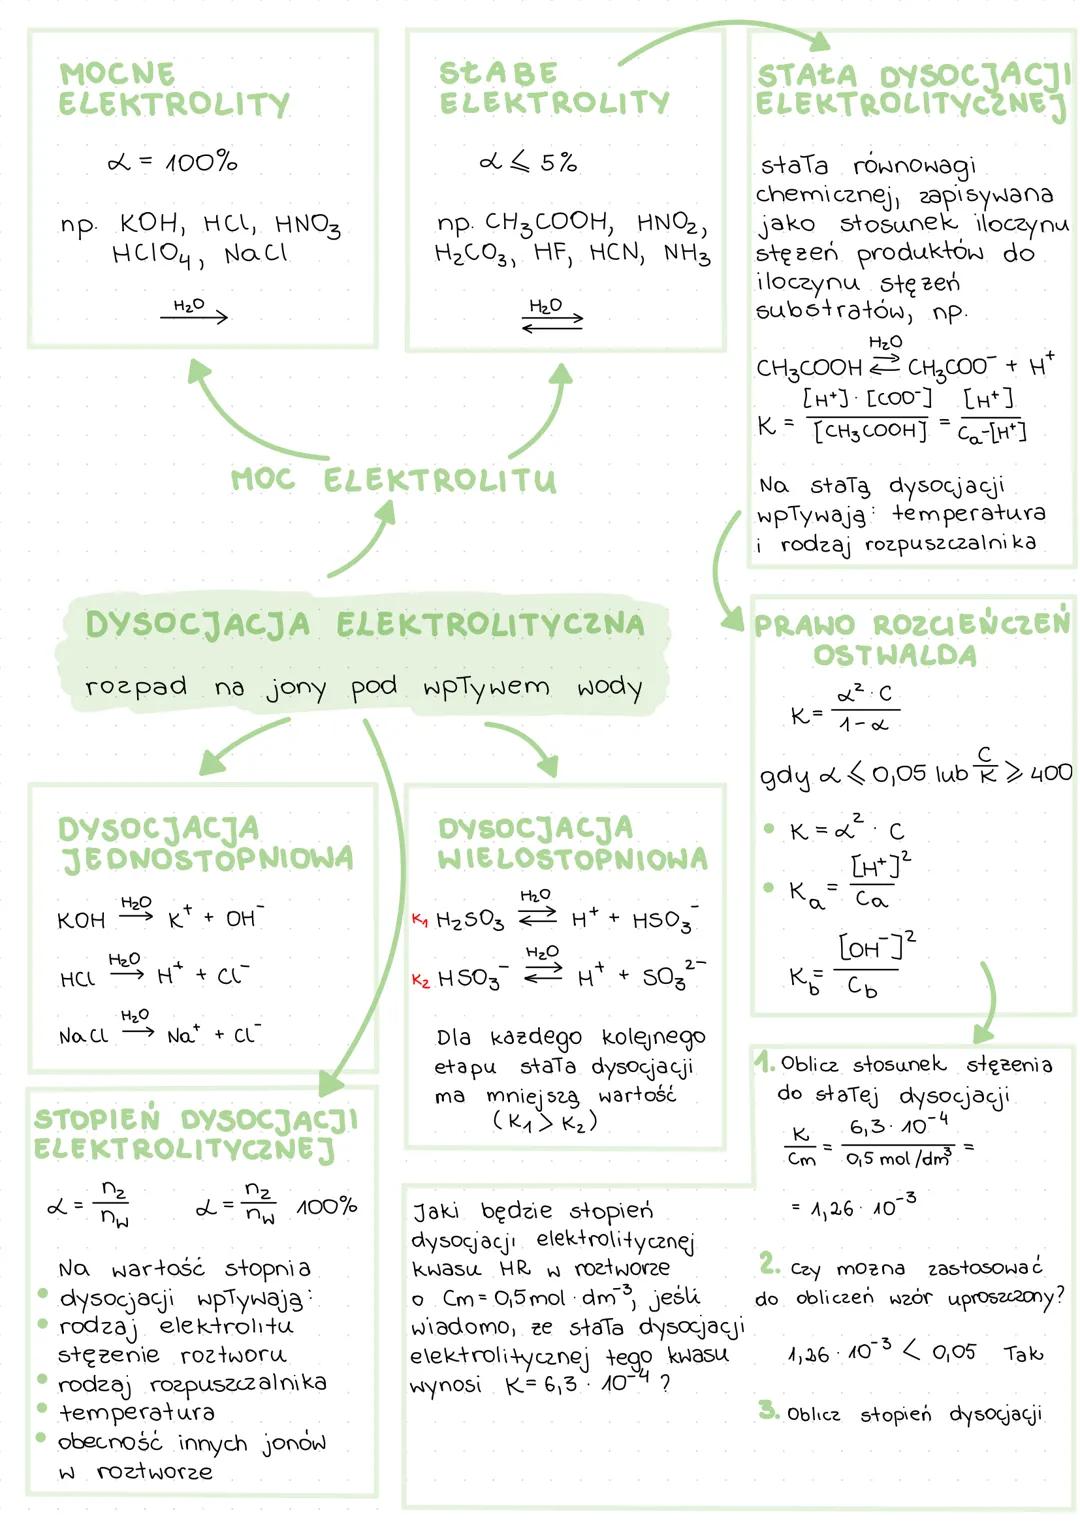 MOCNE
ELEKTROLITY
α = 100%
np. KOH, HCl, HNO₃
HClO₄, NaCl
H₂O
→
SŁABE
ELEKTROLITY
α ⩽ 5%
np. CH₃COOH, HNO₂,
H₂CO₃, HF, HCN, NH₃
H₂O
⇄
STAŁA DYSOCJACJI
ELEKTROLITYCZNEJ
stała równowagi
chemicznej, zapisywana
jako stosunek iloczynu
stężeń produktów do
iloczynu stężeń
substratów, np.
H₂O
CH₃COOH ⇄ CH₃COO⁻ + H⁺
K = [H⁺]·[COO⁻] / [CH₃COOH] = [H⁺] / Ca-[H⁺]
Na stałą dysocjacji
wpływają: temperatura
i rodzaj rozpuszczalnika
MOC ELEKTROLITU
DYSOCJACJA ELEKTROLITYCZNA
rozpad na jony pod wpływem wody
PRAWO ROZCIEŃCZEŃ
OSTWALDA
K = α² · C / 1-α
gdy α ⩽ 0,05 lub C/K ⩾ 400
• K = α² · C
• Ka = [H⁺]² / Ca
Kb = [OH⁻]² / Cb
DYSOCJACJA
JEDNOSTOPNIOWA
H₂O
KOH → K⁺ + OH⁻
H₂O
HCl → H⁺ + Cl⁻
H₂O
NaCl → Na⁺ + Cl⁻
DYSOCJACJA
WIELOSTOPNIOWA
H₂O
K₁ H₂SO₃ ⇄ H⁺ + HSO₃⁻
H₂O
K₂ HSO₃⁻ ⇄ H⁺ + SO₃²⁻
Dla każdego kolejnego
etapu stała dysocjacji
ma mniejszą wartość
(K₁ > K₂)
STOPIEŃ DYSOCJACJI
ELEKTROLITYCZNEJ
α = nz/nw α = nz/nw 100%
Na wartość stopnia
• dysocjacji wpływają:
• rodzaj elektrolitu
stężenie roztworu
• rodzaj rozpuszczalnika
• temperatura
• obecność innych jonów
w roztworze
Jaki będzie stopień
dysocjacji elektrolitycznej
kwasu HR w roztworze
o Cm = 0,5 mol · dm⁻³, jeśli
wiadomo, że stała dysocjacji
elektrolitycznej tego kwasu
wynosi K = 6,3 · 10⁻⁴ ?
1. Oblicz stosunek stężenia
do stałej dysocjacji
K/Cm = 6,3 · 10⁻⁴ / 0,5 mol/dm³ =
= 1,26 · 10⁻³
2. Czy można zastosować
do obliczeń wzór uproszczony?
1,26 · 10⁻³ < 0,05 Tak
3. Oblicz stopień dysocjacji